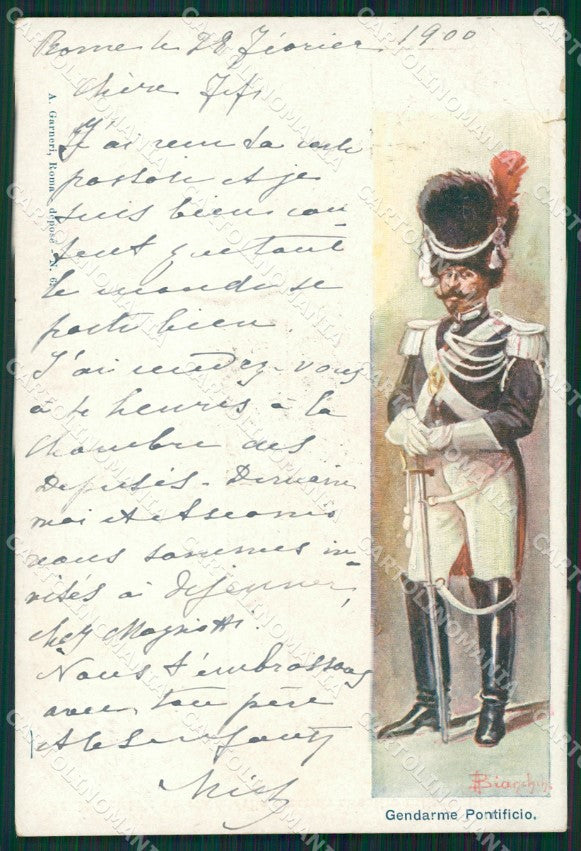 Rome le 28 Février 1900
Chère
J'ai reçu ta carte
postale et je
suis bien con
tent que tout
le monde se
porte bien.
J'ai rendez-vous
à heures à la
Chambre des
Députés. Demain
moi et
nous sommes in
vités à déjeuner
chez
Nous t'embrassons
avec ton père
et les
A. Garneri, Roma - déposé - N.
Bianchini
Gendarme Pontificio.
CARTOLINOMANIA